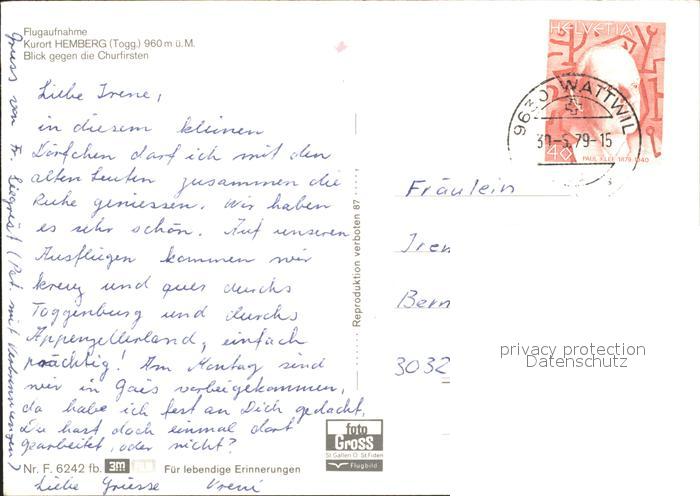 Flugaufnahme
Kurort HEMBERG (Togg.) 960 m ü. M.
Blick gegen die Churfirsten
Liebe Irene,
in diesem kleinen
Dörfchen darf ich mit den
alten Leuten zusammen die
Ruhe geniessen. Wir haben
es sehr schön. Auf unseren
Ausflügen kommen wir
kreuz und quer durchs
Toggenburg und durchs
Appenzellerland, einfach
prächtig! Am Montag sind
wir in Gais vorbeigekommen,
da habe ich fest an Dich gedacht,
Du hast doch einmal dort
gearbeitet, oder nicht?
Liebe Grüsse Vreni
Gruss von Fr. (Pat. mit Verbrennungen)
Nr. F. 6242 fb. 3m
Für lebendige Erinnerungen
foto
Gross
St Gallen O. St Fiden
Flugbild
Reproduktion verboten 87
HELVETIA
40
PAUL KLEE 1879-1940
9630 WATTWIL
79-15
Fräulein
Iren
Bern
3032
privacy protection
Datenschutz